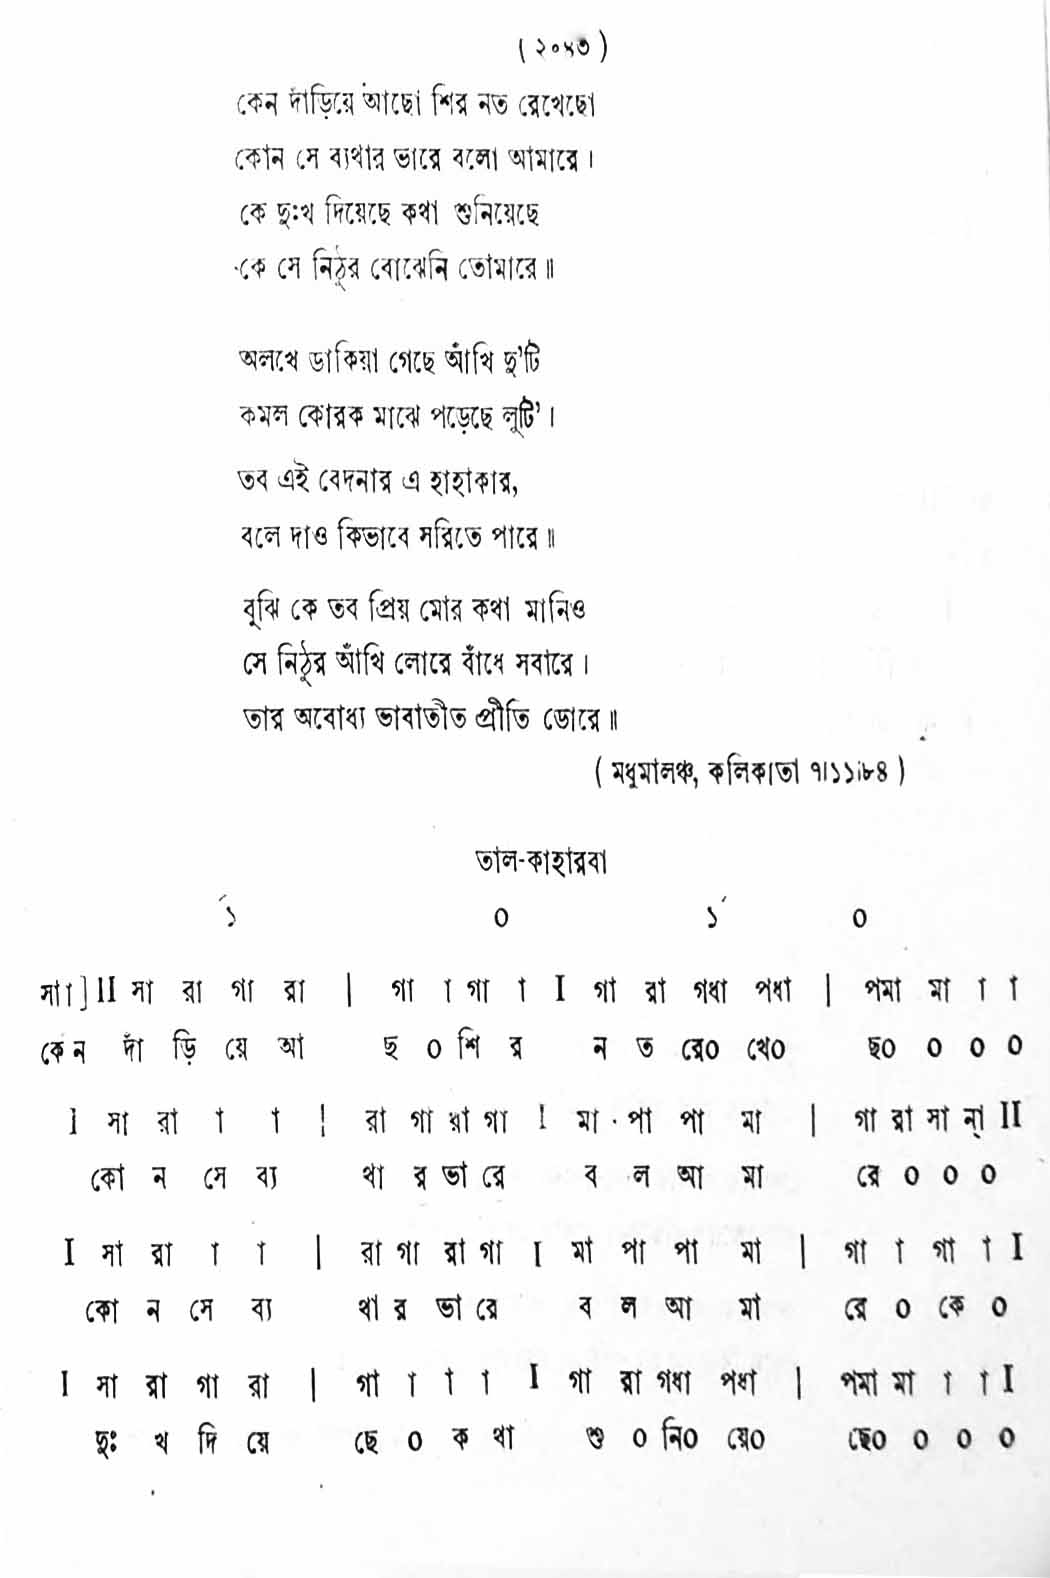 ( ২০৪৩ )
কেন দাঁড়িয়ে আছো শির নত রেখেছো
কোন সে ব্যথার ভারে বলো আমারে ।
কে দুঃখ দিয়েছে কথা শুনিয়েছে
কে সে নিঠুর বোঝেনি তোমারে ॥
অলখে ডাকিয়া গেছে আঁখি দু'টি
কমল কোরক মাঝে পড়েছে লুটি' ।
তব এই বেদনার এ হাহাকার,
বলে দাও কিভাবে সরিতে পারে ॥
বুঝি কে তব প্রিয় মোর কথা মানিও
সে নিঠুর আঁখি লোরে বাঁধে সবারে ।
তার অবোধ্য ভাবাতীত প্রীতি ডোরে ॥
( মধুমালঞ্চ, কলিকাতা ৭।১১।৮৪ )
তাল-কাহারবা
১´ ০ ১´ ০
সা া ] II সা রা গা রা | গা া গা া I গা রা গধা পধা | পমা মা া া
কে ন দাঁ ড়ি য়ে আ ছ ০ শি র ন ত রে০ খে০ ছ০ ০ ০ ০
I সা রা া া | রা গা রা গা I মা পা পা মা | গা রা সা না্ II
কো ন সে ব্য থা র ভা রে ব ল আ মা রে ০ ০ ০
I সা রা া া | রা গা রা গা I মা পা পা মা | গা া গা া I
কো ন সে ব্য থা র ভা রে ব ল আ মা রে ০ কে ০
I সা রা গা রা | গা া া া I গা রা গধা পধা | পমা মা া া I
দুঃ খ দি য়ে ছে ০ ক থা শু ০ নি০ য়ে০ ছে০ ০ ০ ০